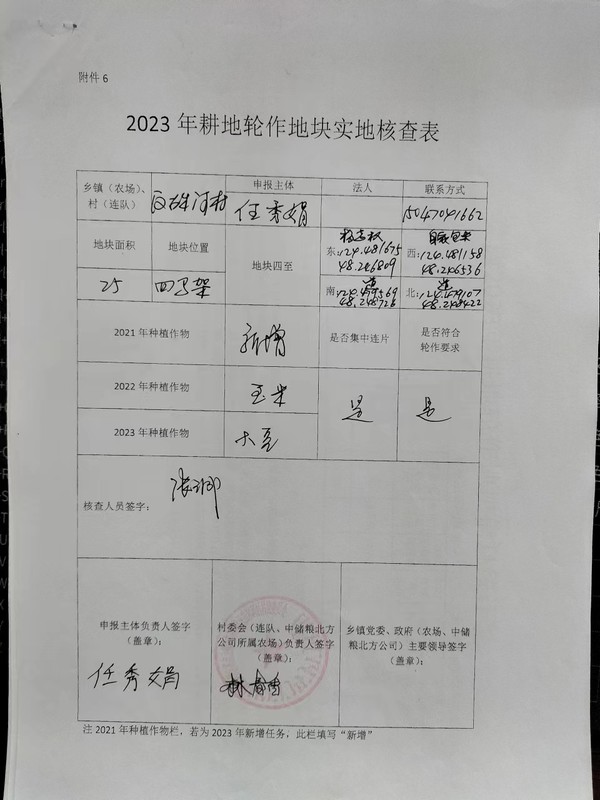 附件 6
2023 年耕地轮作地块实地核查表
乡镇（农场）、
村（连队）
申报主体
法人
联系方式
任秀娟
15047041662
地块面积
地块位置
地块四至
东:124.481675
48.246809
西:124.481158
48.246536
25
南:
道
北:
道
48.248422
2021 年种植作物
新增
是否集中连片
是否符合
轮作要求
2022 年种植作物
玉米
是
是
2023 年种植作物
大豆
核查人员签字：
申报主体负责人签字
（盖章）：
任秀娟
村委会（连队、中储粮北方
公司所属农场）负责人签字
（盖章）：
乡镇党委、政府（农场、中储
粮北方公司）主要领导签字
（盖章）：
注 2021 年种植作物栏，若为 2023 年新增任务，此栏填写“新增”